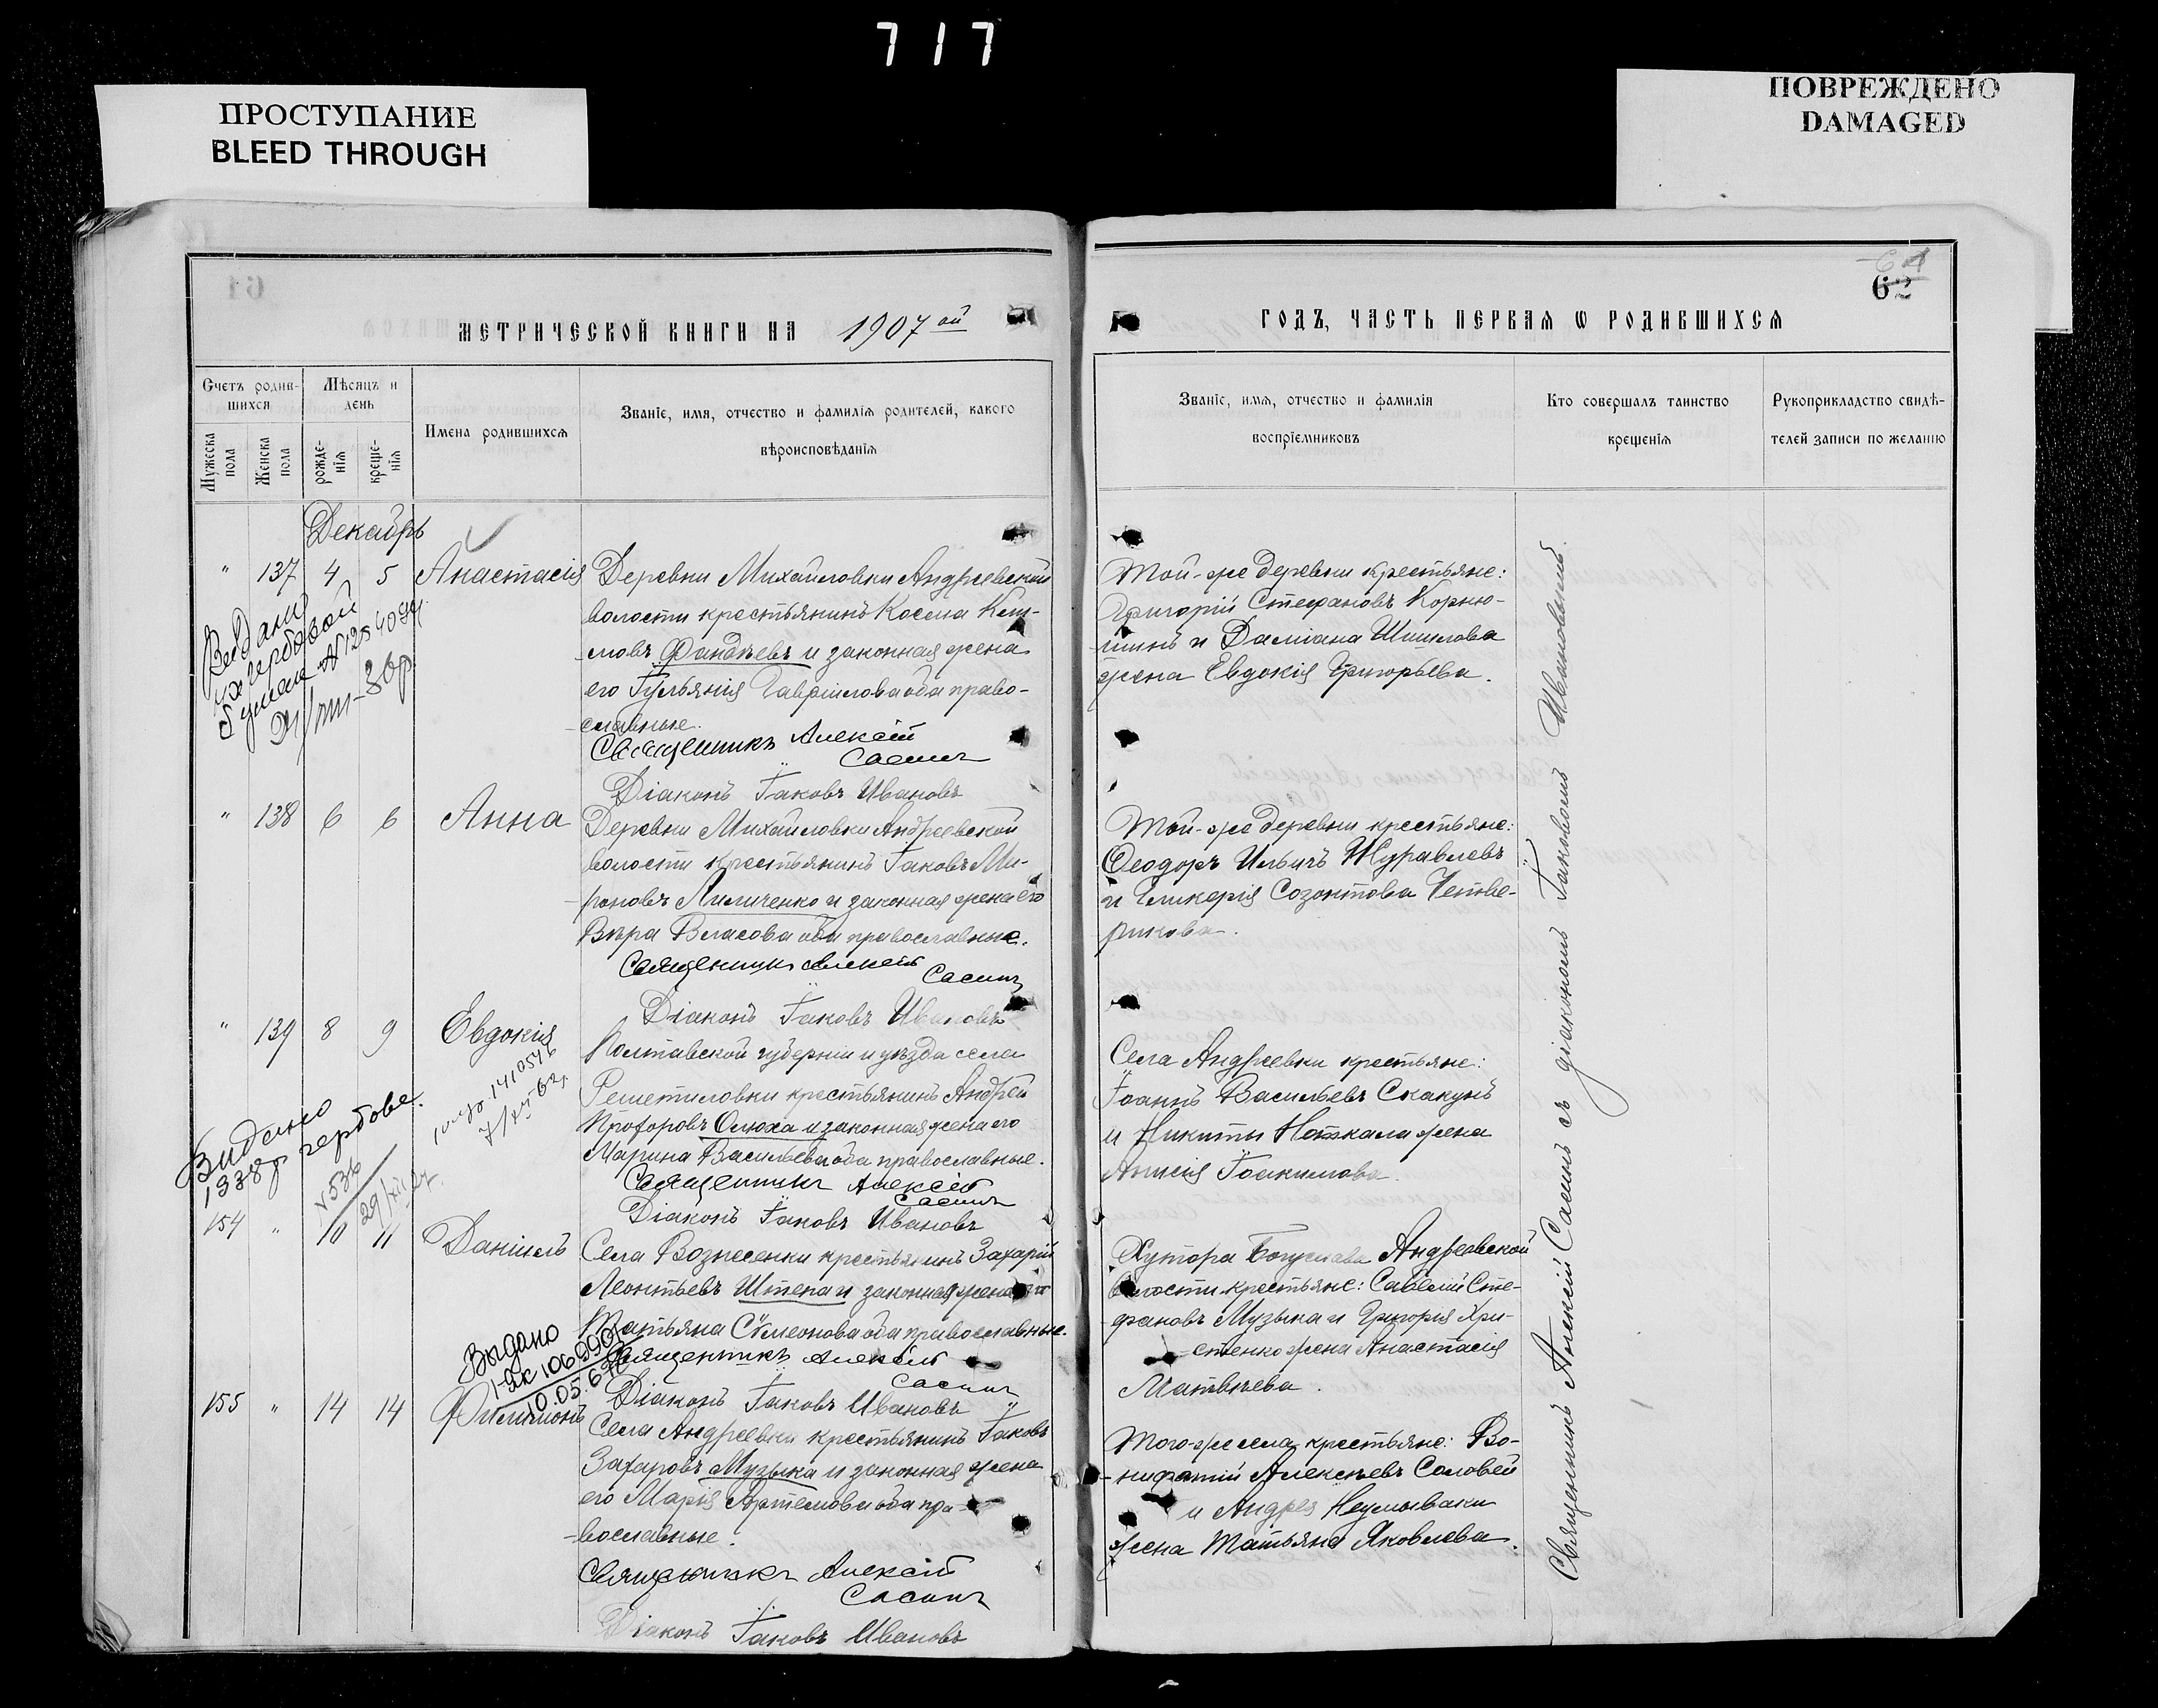 717
ПРОСТУПАНИЕ
BLEED THROUGH
ПОВРЕЖДЕНО
DAMAGED
61
62
МЕТРИЧЕСКОЙ КНИГИ НА 1907ой
ГОДЪ, ЧАСТЬ ПЕРВАЯ Ѡ РОДИВШИХСЯ
Счетъ родив-
шихся
Мѣсяцъ и
день
Мужеска
пола
Женска
пола
рожде-
нія
креще-
нія
Имена родившихся
Званіе, имя, отчество и фамилія родителей, какого
вѣроисповѣданія
Званіе, имя, отчество и фамилія
воспріемниковъ
Кто совершалъ таинство
крещенія
Рукоприкладство свидѣ-
телей записи по желанію
Декабрь
" 137 4 5 Анастасія
Деревни Михайловки Андреевской
волости крестьянинъ Косма
Фандѣевъ и законная жена
его Іуліанія Гавріилова оба право-
-славные.
Священникъ Алексій
Сасинъ
Діаконъ Іаковъ Ивановъ
Той-же деревни крестьяне:
Григорій Стефановъ Корню-
шинъ и Даміана Шишлова
жена Евдокія Григорьева.
Выдана
на гербовой
бумаге
" 138 6 6 Анна
Деревни Михайловки Андреевской
волости крестьянинъ Іаковъ Ми-
роновъ Лиличенко и законная жена его
Вѣра Власова оба православные.
Священникъ Алексій
Сасинъ
Діаконъ Іаковъ Ивановъ
Той-же деревни крестьяне:
Ѳеодоръ Ильичъ Журавлевъ
и Гликерія Созонтова Четве-
рикова.
" 139 8 9 Евдокія
Полтавской губерніи и уѣзда села
Решетиловки крестьянинъ Андрей
Прохоровъ Олюха и законная жена его
Марина Васильева оба православные.
Священникъ Алексій
Сасинъ
Діаконъ Іаковъ Ивановъ
Села Андреевки крестьяне:
Іоаннъ Васильевъ Скакунъ
и Никиты жена
Анисія Іоакимова.
Видано
1938р гербове.
154 " 10 11 Даніилъ
Села Вознесенки крестьянинъ Захарій
Леонтьевъ Штепа и законная жена его
Татьяна Сѵмеонова оба православные.
Священникъ Алексій
Сасинъ
Діаконъ Іаковъ Ивановъ
Хутора Богуслава Андреевской
волости крестьяне: Савелій Сте-
фановъ Музыка и Григорія Хри-
стенко жена Анастасія
Матвѣева.
Выдано
10.05.67
155 " 14 14 Филимонъ
Села Андреевки крестьянинъ Іаковъ
Захаровъ Музыка и законная жена
его Марія Артемова оба пра-
-вославные.
Священникъ Алексій
Сасинъ
Діаконъ Іаковъ Ивановъ
Того-же села крестьяне: Во-
нифатій Алексѣевъ Соловей
и Андрея Неумываки
жена Татьяна Яковлева.
Священникъ Алексій Сасинъ съ діакономъ Іаковомъ Ивановымъ.